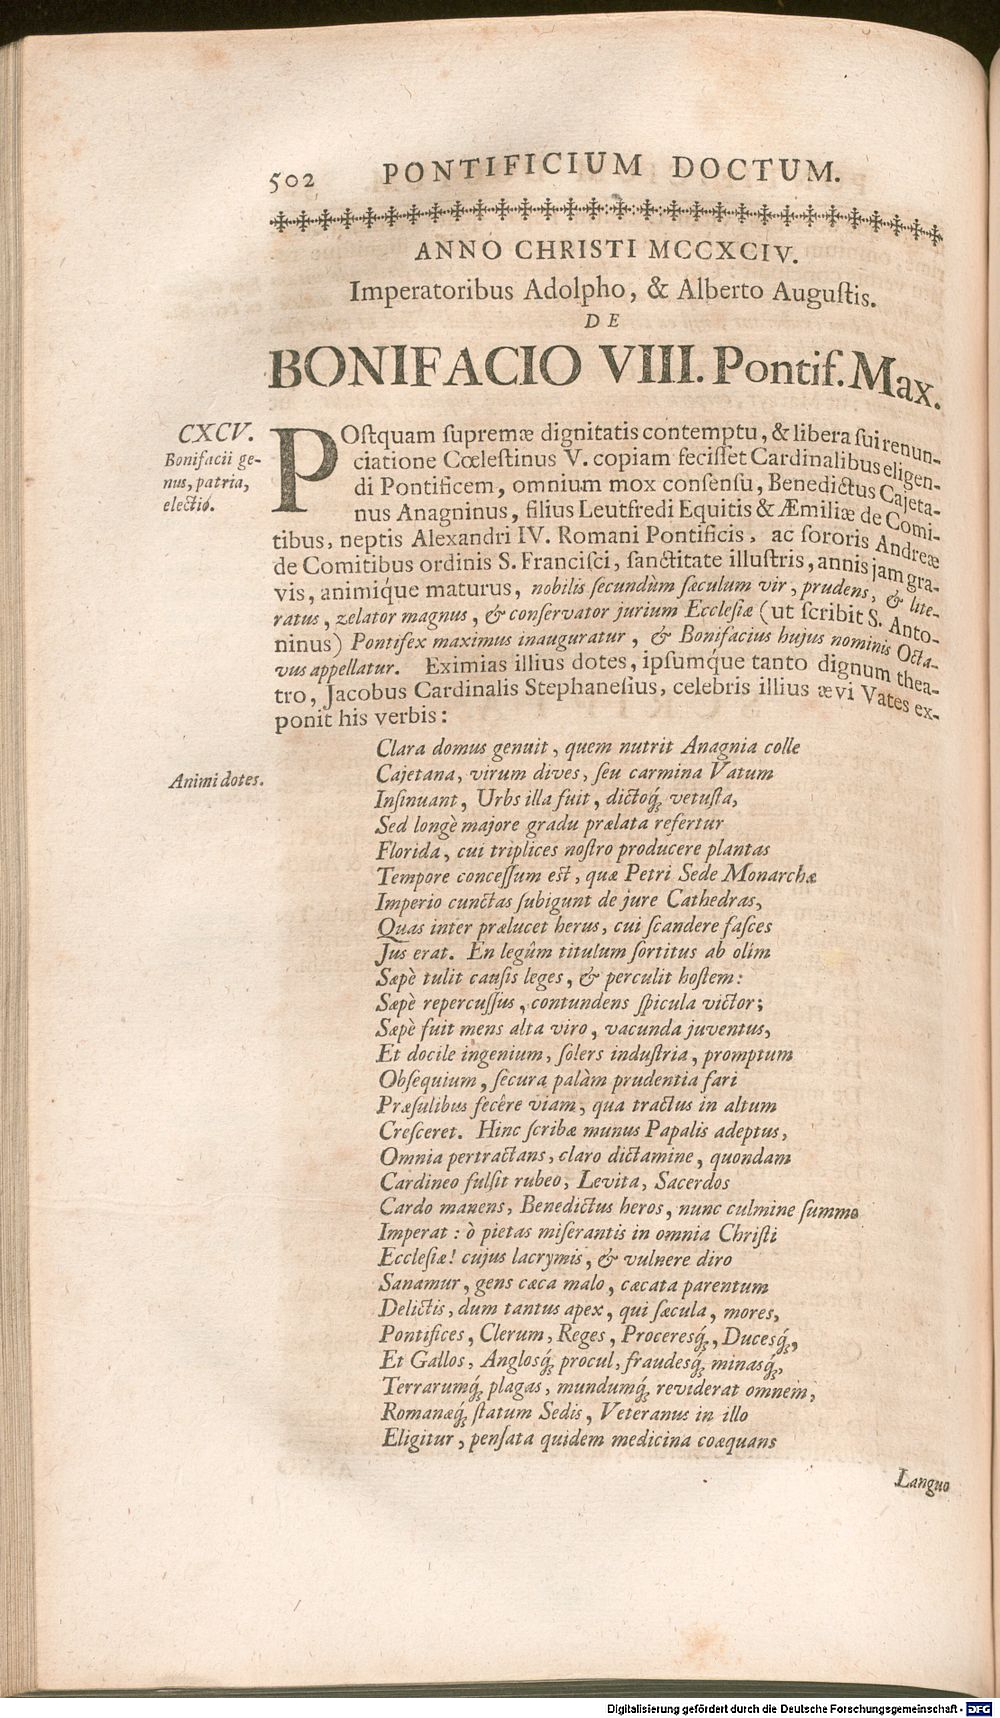 502 PONTIFICIUM DOCTUM.
ANNO CHRISTI MCCXCIV.
Imperatoribus Adolpho, & Alberto Auguſtis.
DE
BONIFACIO VIII. Pontif. Max.
CXCV.
Bonifacii ge-
nus, patria,
electio.
POſtquam ſupremæ dignitatis contemptu, & libera ſui renun-
ciatione Cœleſtinus V. copiam feciſſet Cardinalibus eligen-
di Pontificem, omnium mox conſenſu, Benedictus Cajeta-
nus Anagninus, filius Leutfredi Equitis & Æmiliæ de Comi-
tibus, neptis Alexandri IV. Romani Pontificis, ac ſororis Andreæ
de Comitibus ordinis S. Franciſci, ſanctitate illuſtris, annis jam gra-
vis, animique maturus, nobilis ſecundùm ſæculum vir, prudens, & lite-
ratus, zelator magnus, & conſervator jurium Eccleſiæ (ut ſcribit S. Anto-
ninus) Pontifex maximus inauguratur, & Bonifacius hujus nominis Octa-
vus appellatur. Eximias illius dotes, ipſumque tanto dignum thea-
tro, Jacobus Cardinalis Stephaneſius, celebris illius ævi Vates ex-
ponit his verbis:
Animi dotes.
Clara domus genuit, quem nutrit Anagnia colle
Cajetana, virum dives, ſeu carmina Vatum
Inſinuant, Urbs illa fuit, dictoq́; vetuſta,
Sed longè majore gradu prælata refertur
Florida, cui triplices noſtro producere plantas
Tempore conceſſum eſt, quæ Petri Sede Monarchæ
Imperio cunctas ſubigunt de jure Cathedras,
Quas inter prælucet herus, cui ſcandere faſces
Jus erat. En legûm titulum ſortitus ab olim
Sæpè tulit cauſis leges, & perculit hoſtem:
Sæpè repercuſſus, contundens ſpicula victor;
Sæpè fuit mens alta viro, vacunda juventus,
Et docile ingenium, ſolers induſtria, promptum
Obſequium, ſecura palàm prudentia fari
Præſulibus fecêre viam, qua tractus in altum
Creſceret. Hinc ſcribæ munus Papalis adeptus,
Omnia pertractans, claro dictamine, quondam
Cardineo fulſit rubeo, Levita, Sacerdos
Cardo manens, Benedictus heros, nunc culmine ſummo
Imperat: ò pietas miſerantis in omnia Chriſti
Eccleſiæ! cujus lacrymis, & vulnere diro
Sanamur, gens cæca malo, cæcata parentum
Delictis, dum tantus apex, qui ſæcula, mores,
Pontifices, Clerum, Reges, Proceresq́;, Ducesq́;,
Et Gallos, Anglosq́; procul, fraudesq́; minasq́;,
Terrarumq́; plagas, mundumq́; reviderat omnem,
Romanæq́; ſtatum Sedis, Veteranus in illo
Eligitur, penſata quidem medicina coæquans
Languo
Digitalisierung gefördert durch die Deutsche Forschungsgemeinschaft - DFG